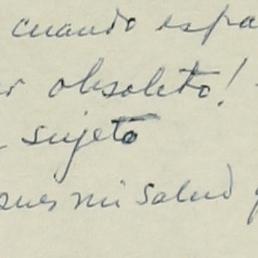 cuando espa
obsoleto!
sujeto
pues mi salud